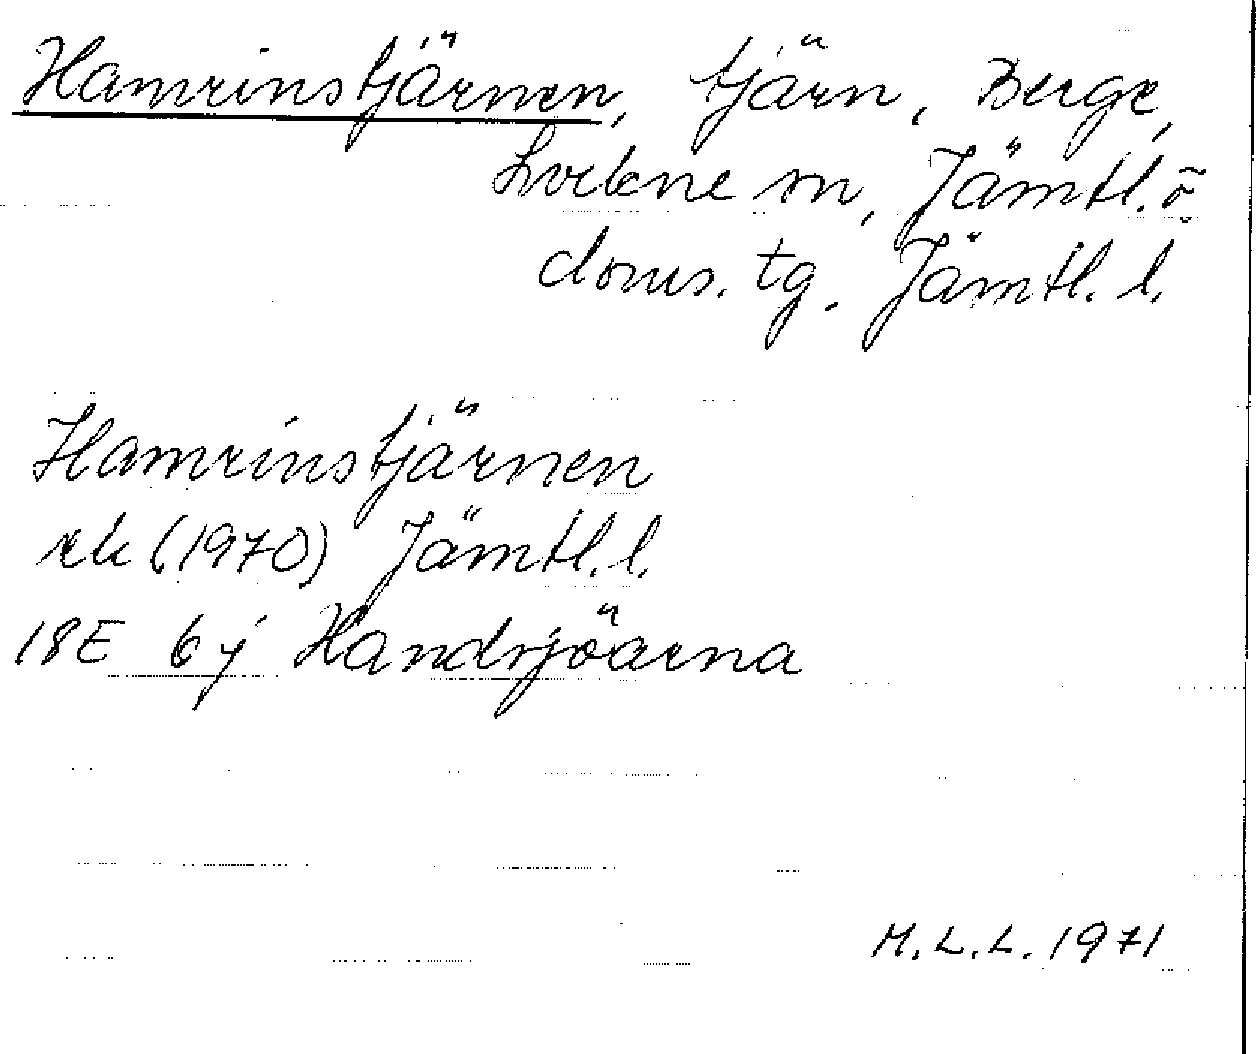 Hamrinstjärnen, tjärn, Berge,
sn, Jämtl. ö.
doms. tg. Jämtl. l.
Hamrinstjärnen
rek (1970) Jämtl. l.
18E 6j Handsjöarna
M.L.L. 1971